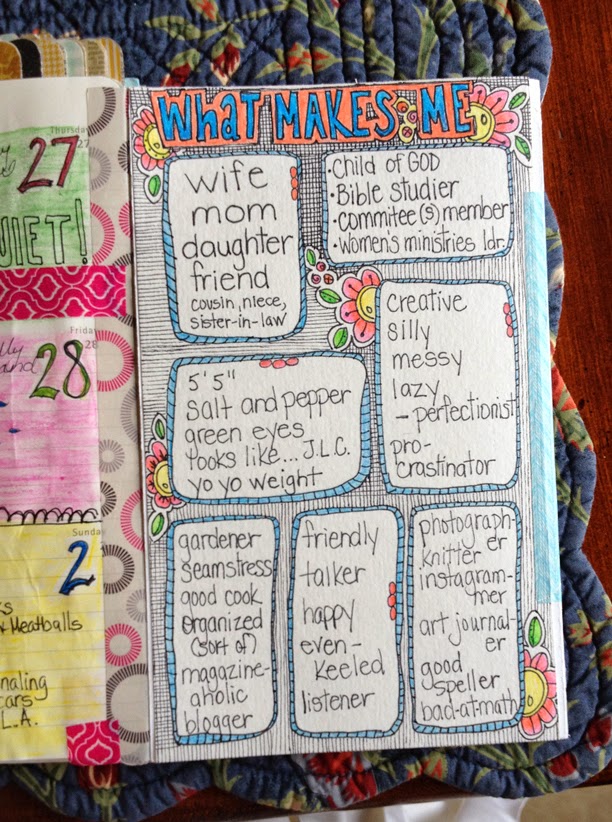 Thursday
27
27
UIET!
Friday
28
28
Sunday
2
Meatballs
L.A.
WHAT MAKES ME
wife
mom
daughter
friend
cousin, niece,
sister-in-law
•Child of GOD
•Bible studier
•Commitee(s) member
•Women's ministries ldr.
creative
silly
messy
lazy
-perfectionist
pro-
crastinator
5'5"
salt and pepper
green eyes
looks like... J.L.C.
yo yo weight
gardener
seamstress
good cook
organized
(sort of)
magazine-
aholic
blogger
friendly
talker
happy
even-
keeled
listener
photograph-
er
knitter
instagram-
mer
art journal-
er
good
speller
bad-at-math